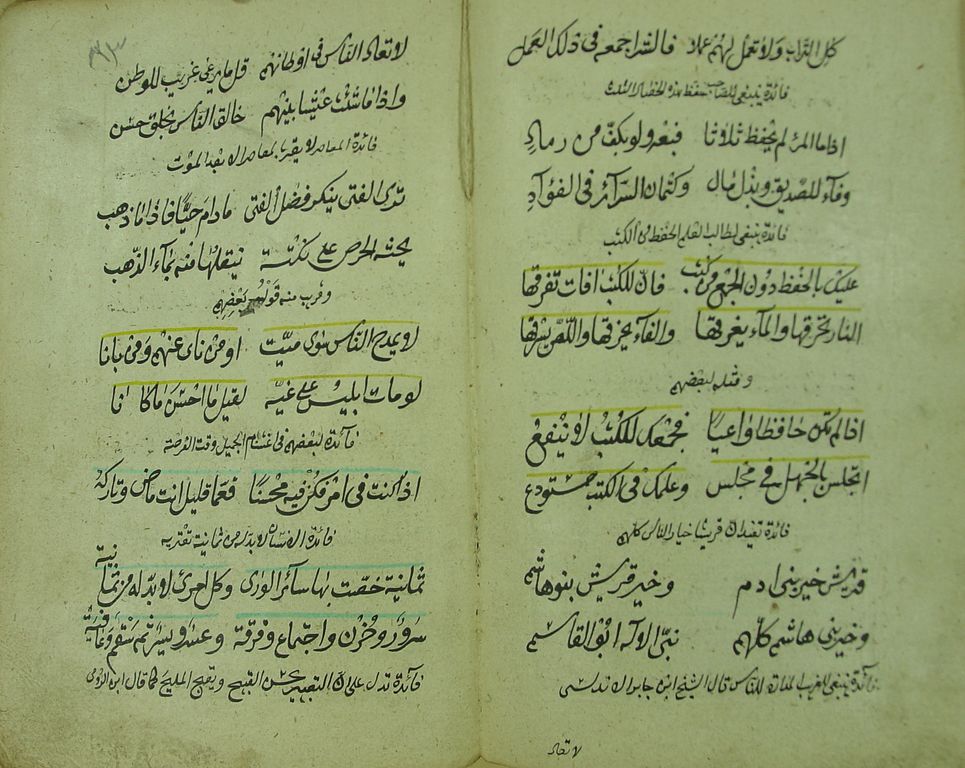 كل التراب ولا تعمل لهم عملا فالشر اجمعه في ذلك العمل
فائدة ينبغي للصاحب حفظ هذه الخصال الثلاث
اذا ما المرء لم يحفظ ثلاثا فبعه ولو بكف من رماد
وفاء للصديق وبذل مال وكتمان السرآئر في الفؤآد
فائدة ينبغي لطالب العلم الحفظ من الكتب
عليك بالحفظ دون الجمع من كتب فان للكتب افات تفرقها
النار تحرقها والمآء يغرقها والفآء يخرقها واللص يسرقها
ومثله لبعضهم
اذا لم تكن حافظا واعيا فجمعك للكتب لا ينفع
اتجلس بالجهل في مجلس وعلمك في الكتب مستودع
فائدة تفيد ان قريشا خيار الناس كلهم
قريش خير بني ادم وخير قريش بنو هاشم
وخير بني هاشم كلهم نبي الاله ابو القاسم
فائدة ينبغي للغريب المداراة للناس قال الشيخ ابن جابر الاندلسي
لا تعاد
لا تعاد الناس في اوطانهم قل ما يرعى غريب للوطن
واذا ما شئت عيشا بينهم خالق الناس بخلق حسن
فائدة المعاصر لا يقر بمعاصر الا بعد الموت
ترى الفتى ينكر فضل الفتى مادام حيا فاذا ما ذهب
يحثه الحرص على نكتة ينقلها منه بمآء الذهب
وقرب منه قولهم بعضهم
لا يمدح الناس سوى ميت او من ناى عنهم ومن بانا
لو مات ابليس على غيه لقيل ما احسن ما كا نا
فآئدة لبعضهم في اغتنام الجميل وقت الفرصة
اذا كنت في امر فكن فيه محسنا فعما قليل انت ماض وتاركه
فائدة الانسان لا بد له من ثمانية تعتريه
ثمانية خصت بها سآئر الورى وكل امرئ لا بد له من ثمانية
سرور وحزن واجتماع وفرقة وعسر ويسر ثم سقم وعافية
فائدة تدل على ان التعبير يحسن القبيح ويقبح المليح كما قال ابن الرومي